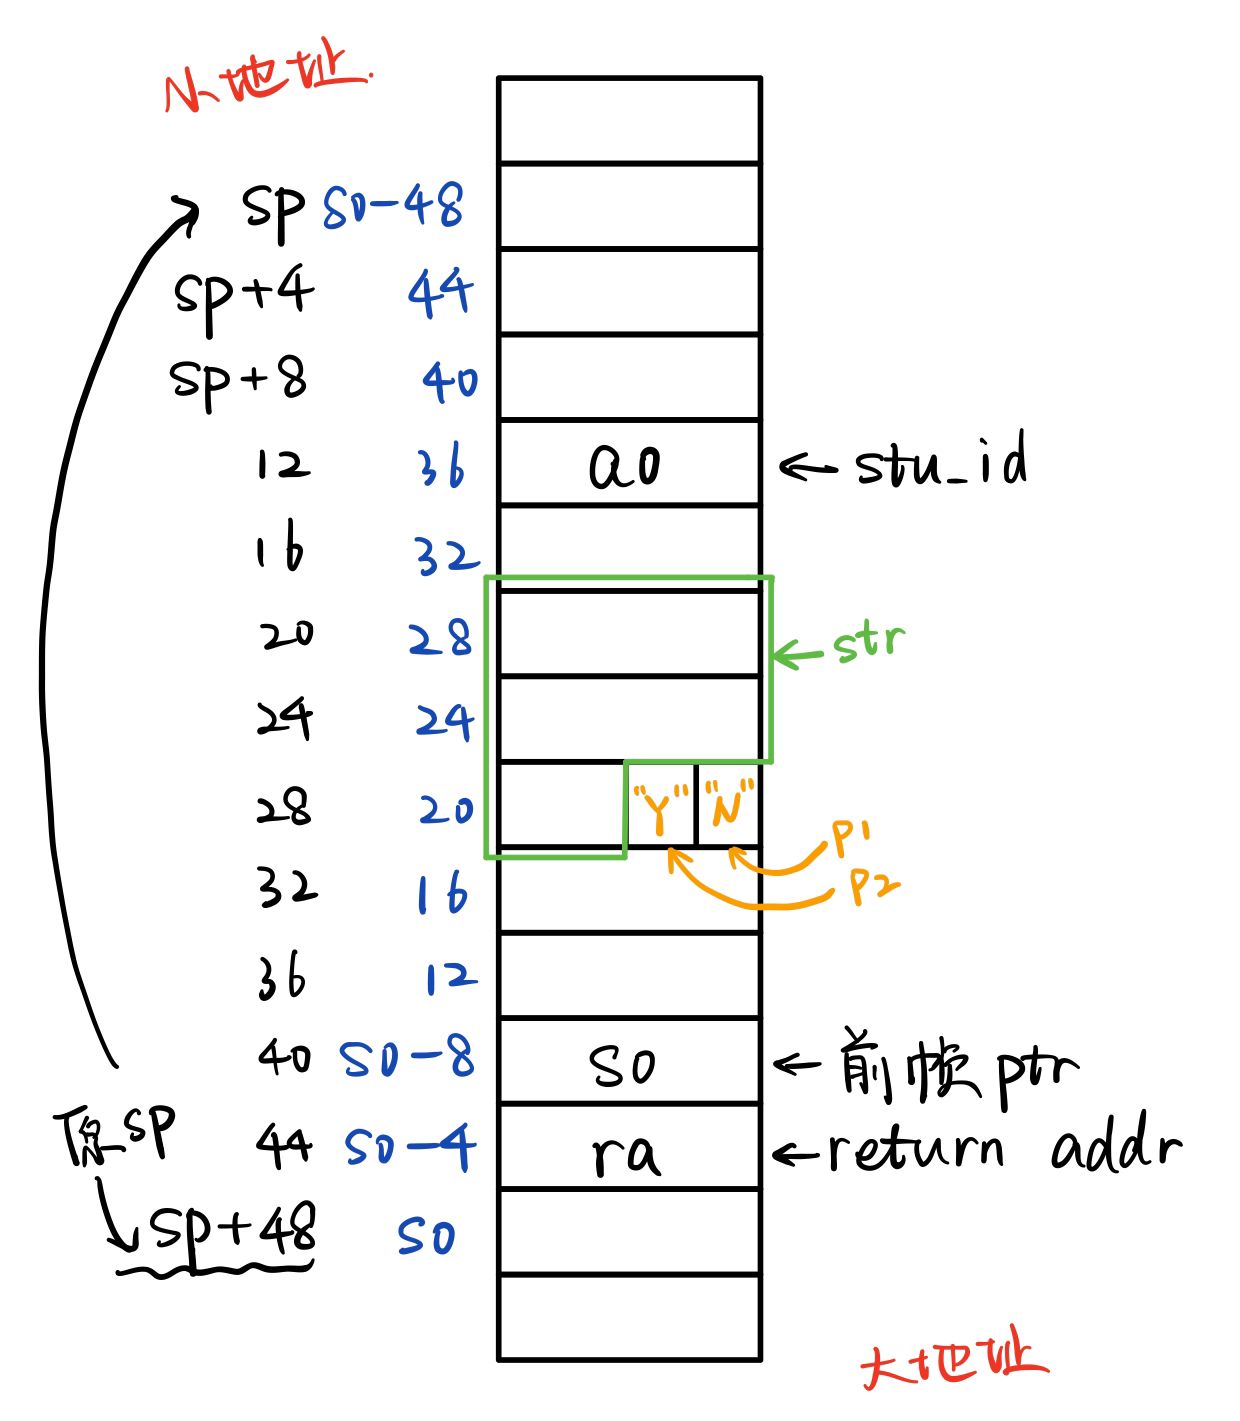 小地址.
sp s0-48
sp+4 44
sp+8 40
12 36 a0 ← stu_id
16 32
20 28 ← str
24 24
28 20 "Y" "N"
p1
32 16 p2
36 12
40 s0-8 s0 ← 前帧ptr
原sp 44 s0-4 ra ← return addr
sp+48 s0
大地址